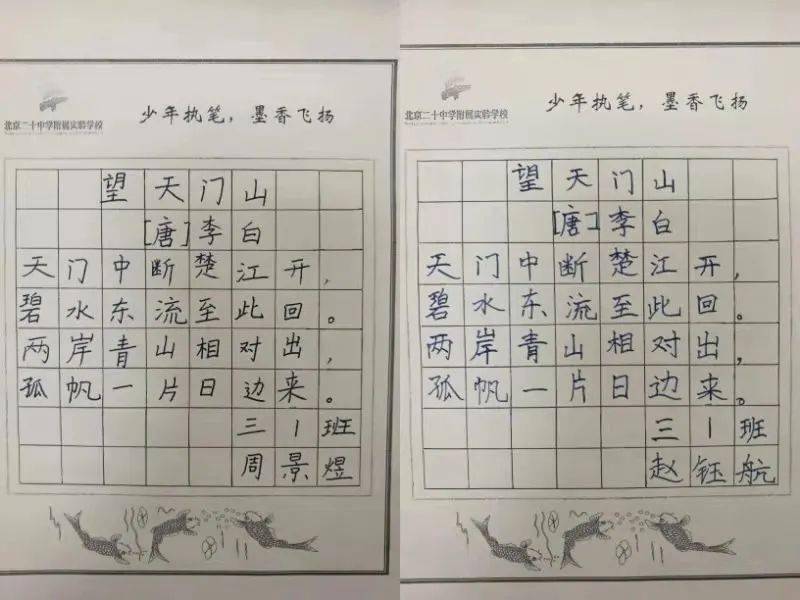 少年执笔，墨香飞扬
北京二十中学附属实验学校
望天门山
[唐]李白
天门中断楚江开，
碧水东流至此回。
两岸青山相对出，
孤帆一片日边来。
三1班
周景煜
少年执笔，墨香飞扬
北京二十中学附属实验学校
望天门山
[唐]李白
天门中断楚江开，
碧水东流至此回。
两岸青山相对出，
孤帆一片日边来。
三1班
赵钰航